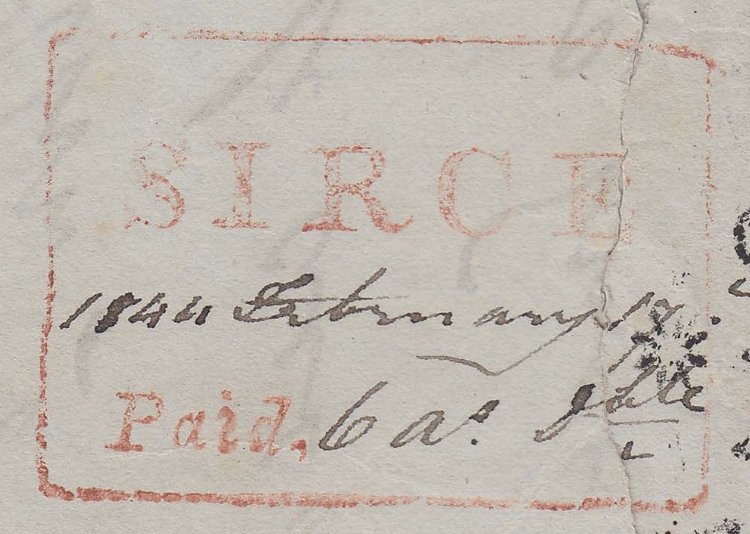 SIRCE
1844 February 17.
Paid. 6 as.